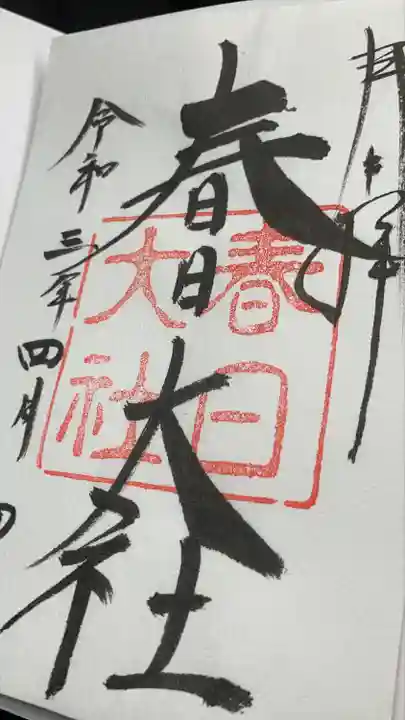 奉拝
春日大社
春日大社
令和三年四月